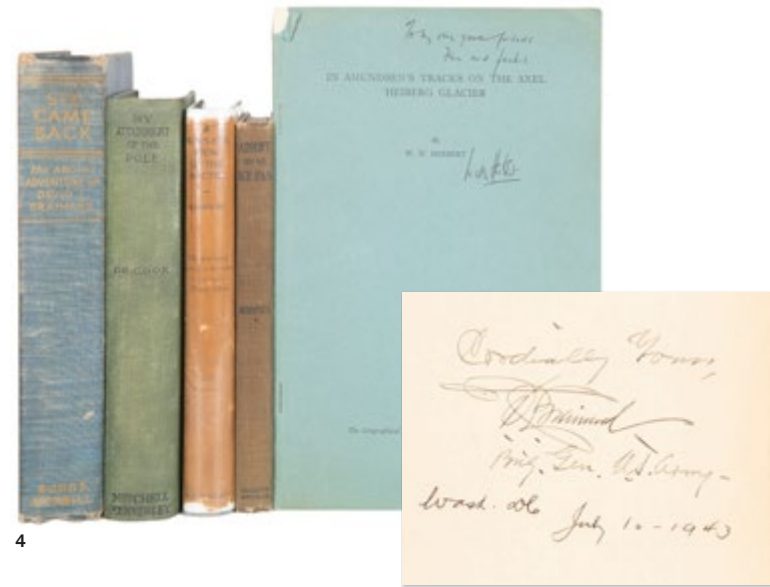 SIX
CAME
BACK
THE ARCTIC
ADVENTURE OF
DAVID L.
BRAINARD
BOBBS
MERRILL
MY
ATTAINMENT
OF THE
POLE
DR. COOK
MITCHELL
KENNERLEY
ADRIFT
ICE-PAN
To my very good friends
IN AMUNDSEN'S TRACKS ON THE AXEL
HEIBERG GLACIER
BY
W. W. HERBERT
The Geographical
Cordially Yours,
D L Brainard
Brig. Gen. U.S. Army-
Wash. DC
July 10-1943
4